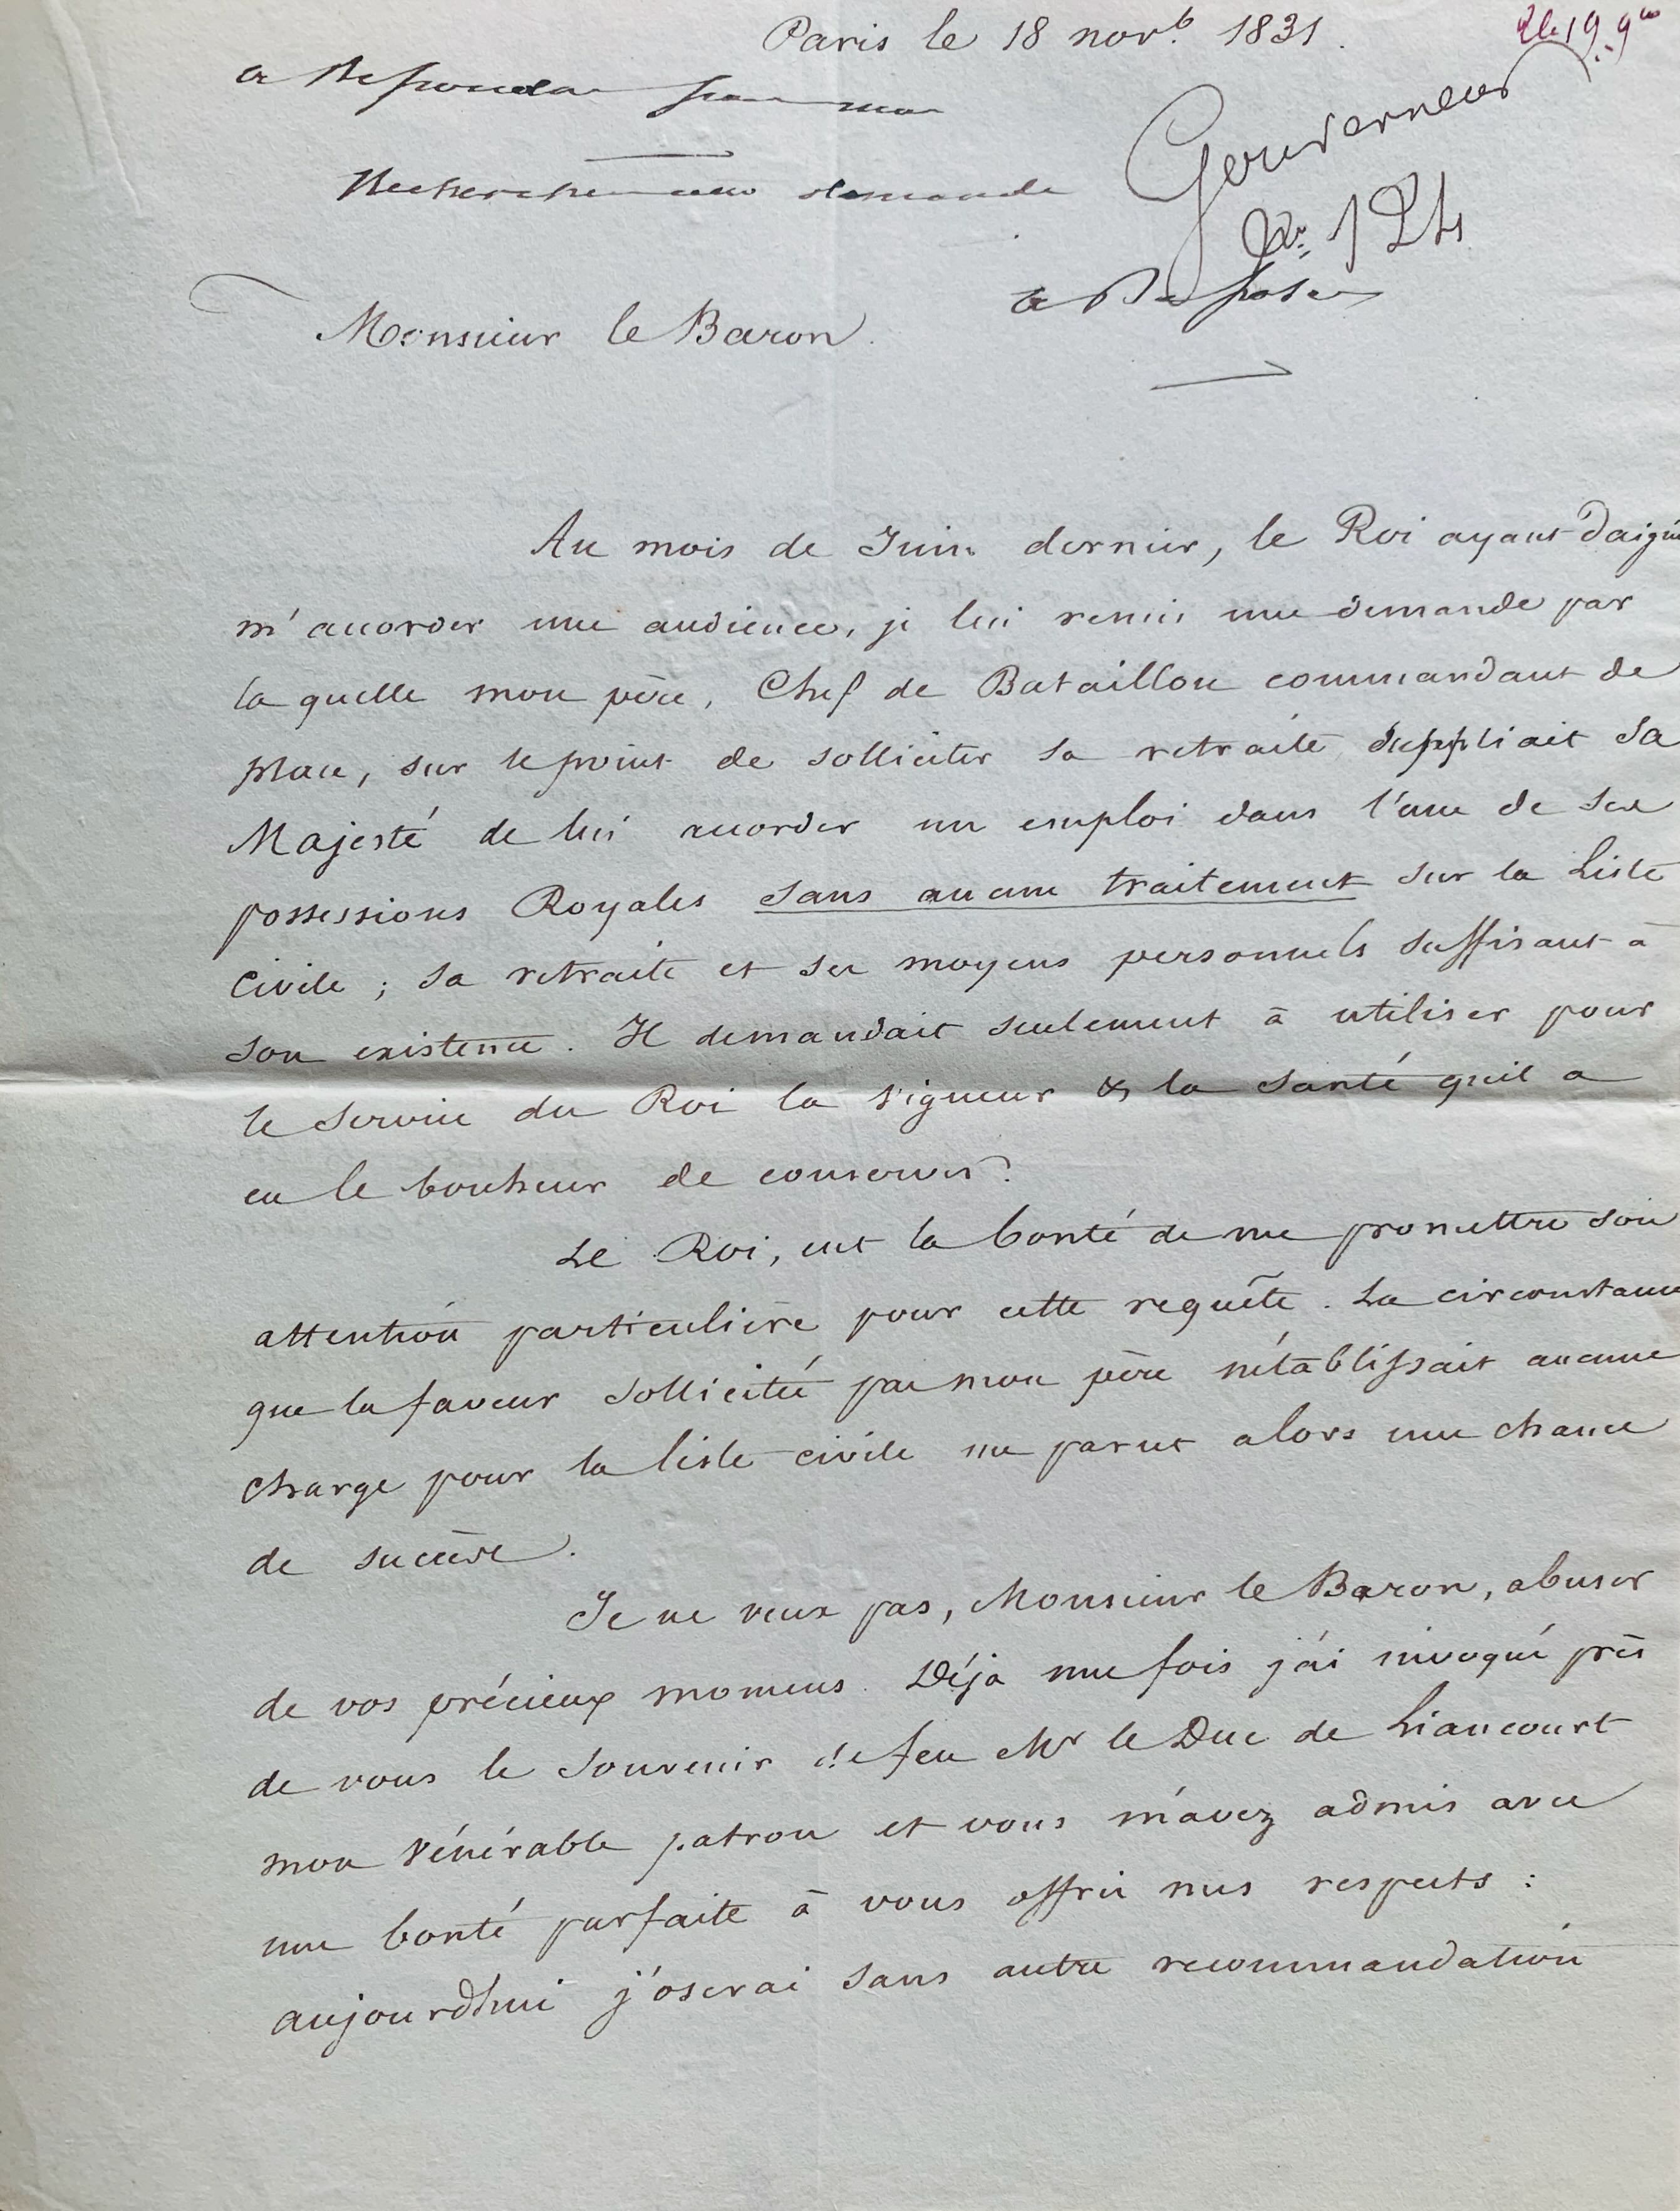 Paris le 18 novb. 1831.
a Repondre
Rechercher demande
Gouverneur
No. 124
Monsieur le Baron.
Au mois de Juin dernier, le Roi ayant daigné
m'accorder une audience, je lui remis une demande par
la quelle mon père, Chef de Bataillon commandant de
place, sur le point de solliciter sa retraite suppliait Sa
Majesté de lui accorder un emploi dans l'une de ses
possessions Royales sans aucun traitement sur la Liste
Civile; sa retraite et ses moyens personnels suffisant à
son existence. Il demandait seulement à utiliser pour
le service du Roi la vigueur & la santé qu'il a
eu le bonheur de conserver.
Le Roi, eut la bonté de me promettre son
attention particulière pour cette requête. La circonstance
que la faveur sollicitée par mon père n'établissait aucune
charge pour la liste civile me parut alors une chance
de succès.
Je ne veux pas, Monsieur le Baron, abuser
de vos précieux momens. Déjà une fois j'ai invoqué près
de vous le souvenir de feu Mr le Duc de Liancourt
mon vénérable patron et vous m'avez admis avec
une bonté parfaite à vous offrir mes respects :
aujourd'hui j'oserai sans autre recommandation